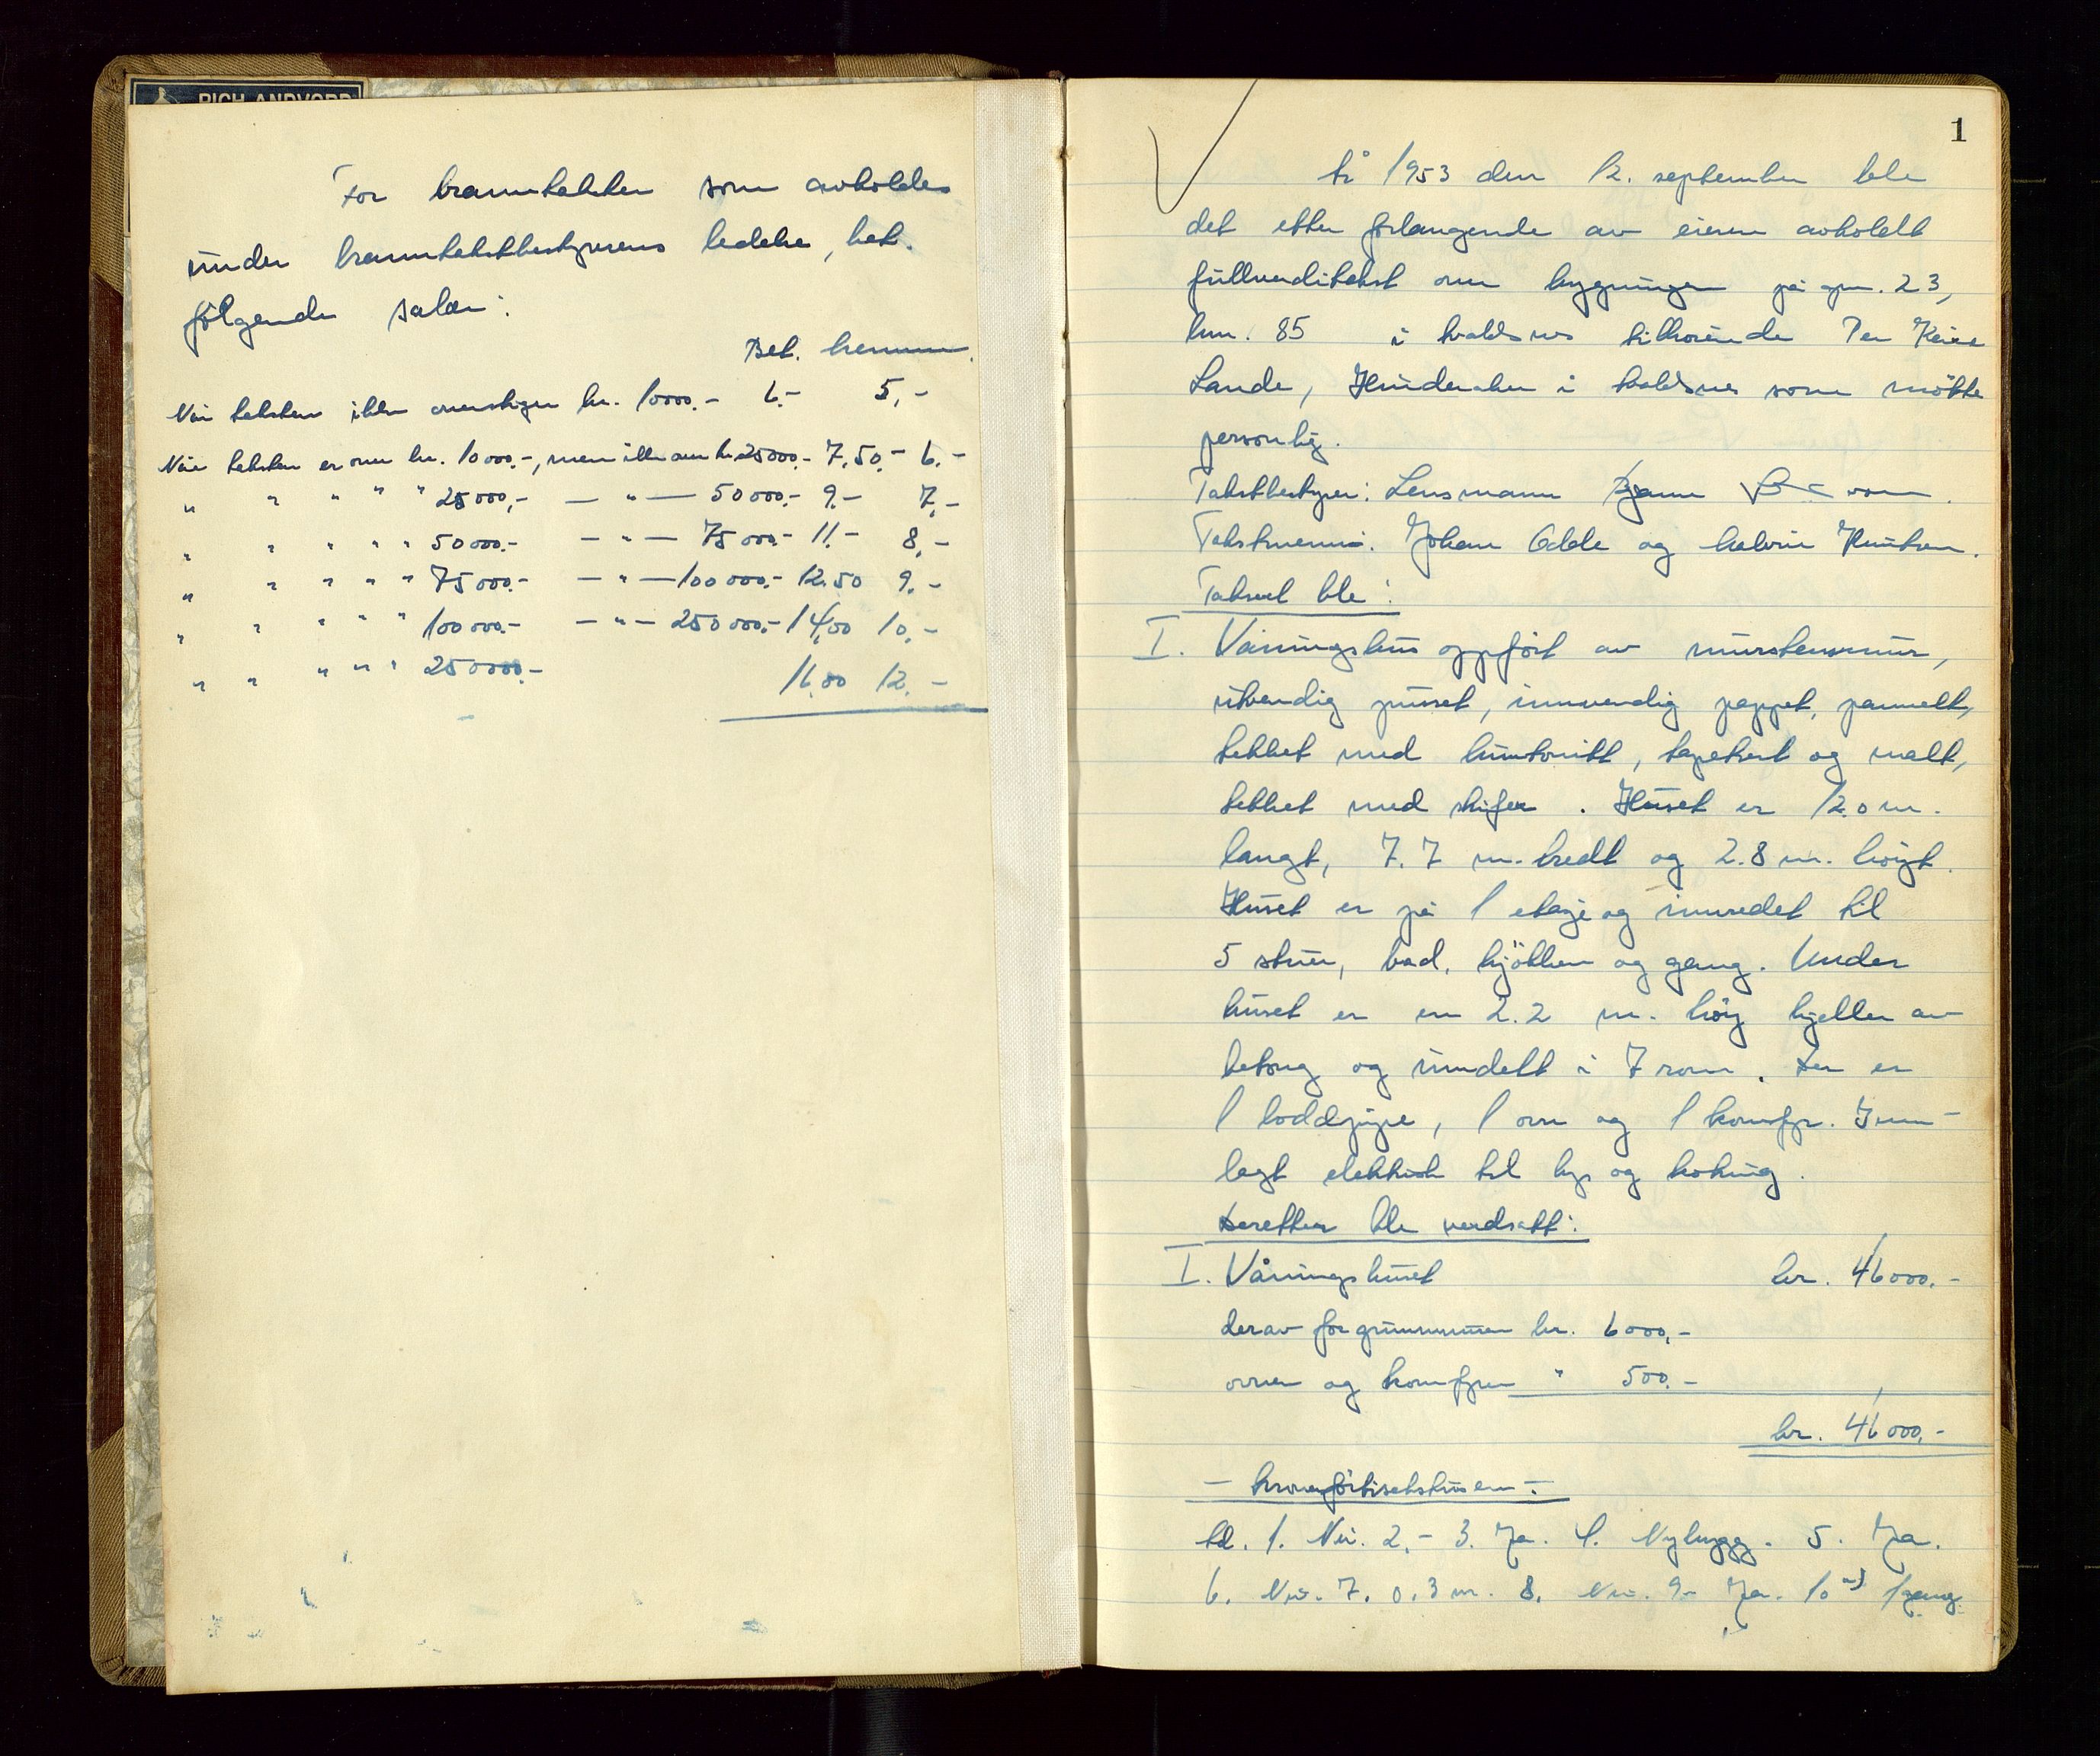 RICH. ANDVORD
For branntakster som avholdes
under branntakstbestyrerens ledelse, bet.
følgende salær:
Best. Mennene.
Når taksten ikke overstiger kr. 10000.- 6.- 5,-
Når taksten er over kr. 10000.-, men ikke over kr. 25000.- 7.50.- 6.-
" " " " " 25000,- — " — 50000.- 9.- 7.-
" " " " " 50000.- — " — 75000.- 11.- 8,-
" " " " " 75000.- — " — 100000.- 12.50 9.-
" " " " " 100000.- — " — 250000.- 14,00 10.-
" " " " " 250000.- 16.00 12.-
1
År 1953 den 12. september ble
det etter forlangende av eieren avholdt
fullverditakst over bygningen på gnr. 23,
bnr. 85 i tilhørende Per
Lande, i som møtte
personlig.
Takstbestyrer: Lensmann
Takstmenn: Johan Odde og Knutsen.
Taksert ble:
I. Våningshus oppført av murstensmur,
utvendig pusset, innvendig pappet, panelt,
tekket med huntonitt, tapetsert og malt,
tekket med skifer. Huset er 12.0 m.
langt, 7.7 m. bredt og 2.8 m. høigt.
Huset er på 1 etasje og innredet til
5 stuer, bad, kjøkken og gang. Under
huset er en 2.2 m. høig kjeller av
betong og inndelt i 7 rom. Der er
1 loddpipe, 1 ovn og 1 komfyr. Inn-
lagt elektrisk til lys og koking.
Deretter ble verdsatt:
I. Våningshuset kr. 46000.-
derav for grunnmuren kr. 6000,-
ovnen og komfyren " 500.-
kr. 46000.-
bd. 1. Nei. 2.- 3. Ja. 4. Nybygg. 5. Ja.
6. Nei. 7. 0.3 m. 8. Nei. 9.- Ja. 10 a) 1 gang.